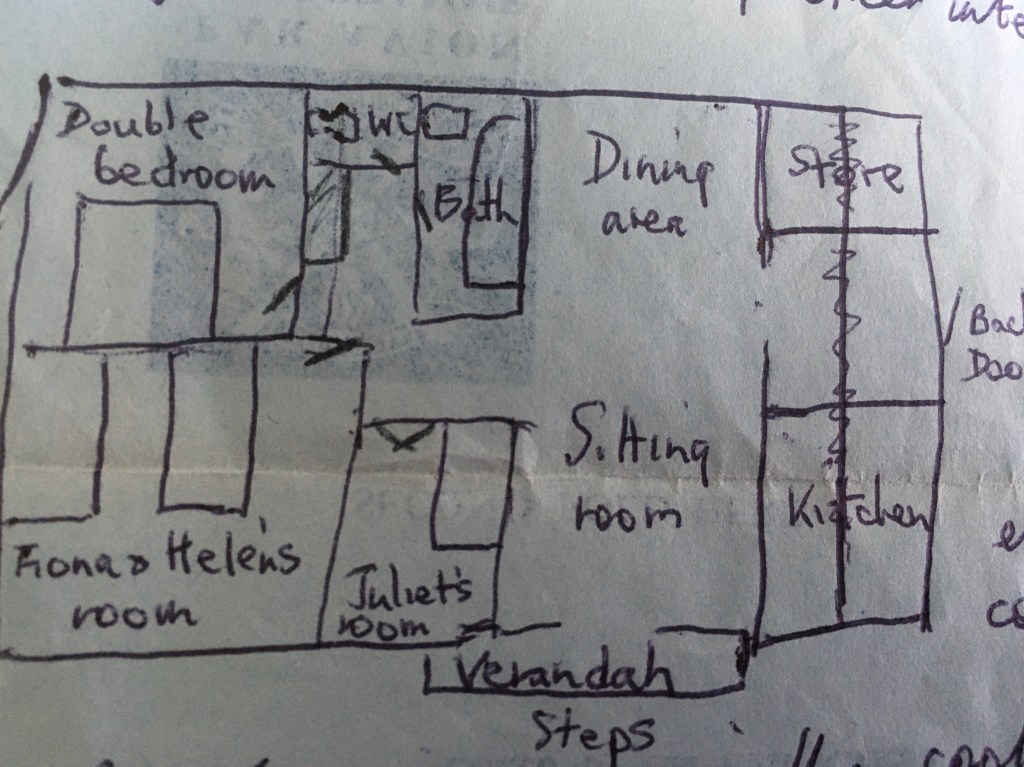 inte
Double
bedroom
WC
Bath
Dining
area
Store
Bac
Doo
Sitting
room
Kitchen
Fiona & Helen's
room
Juliet's
room
Verandah
Steps